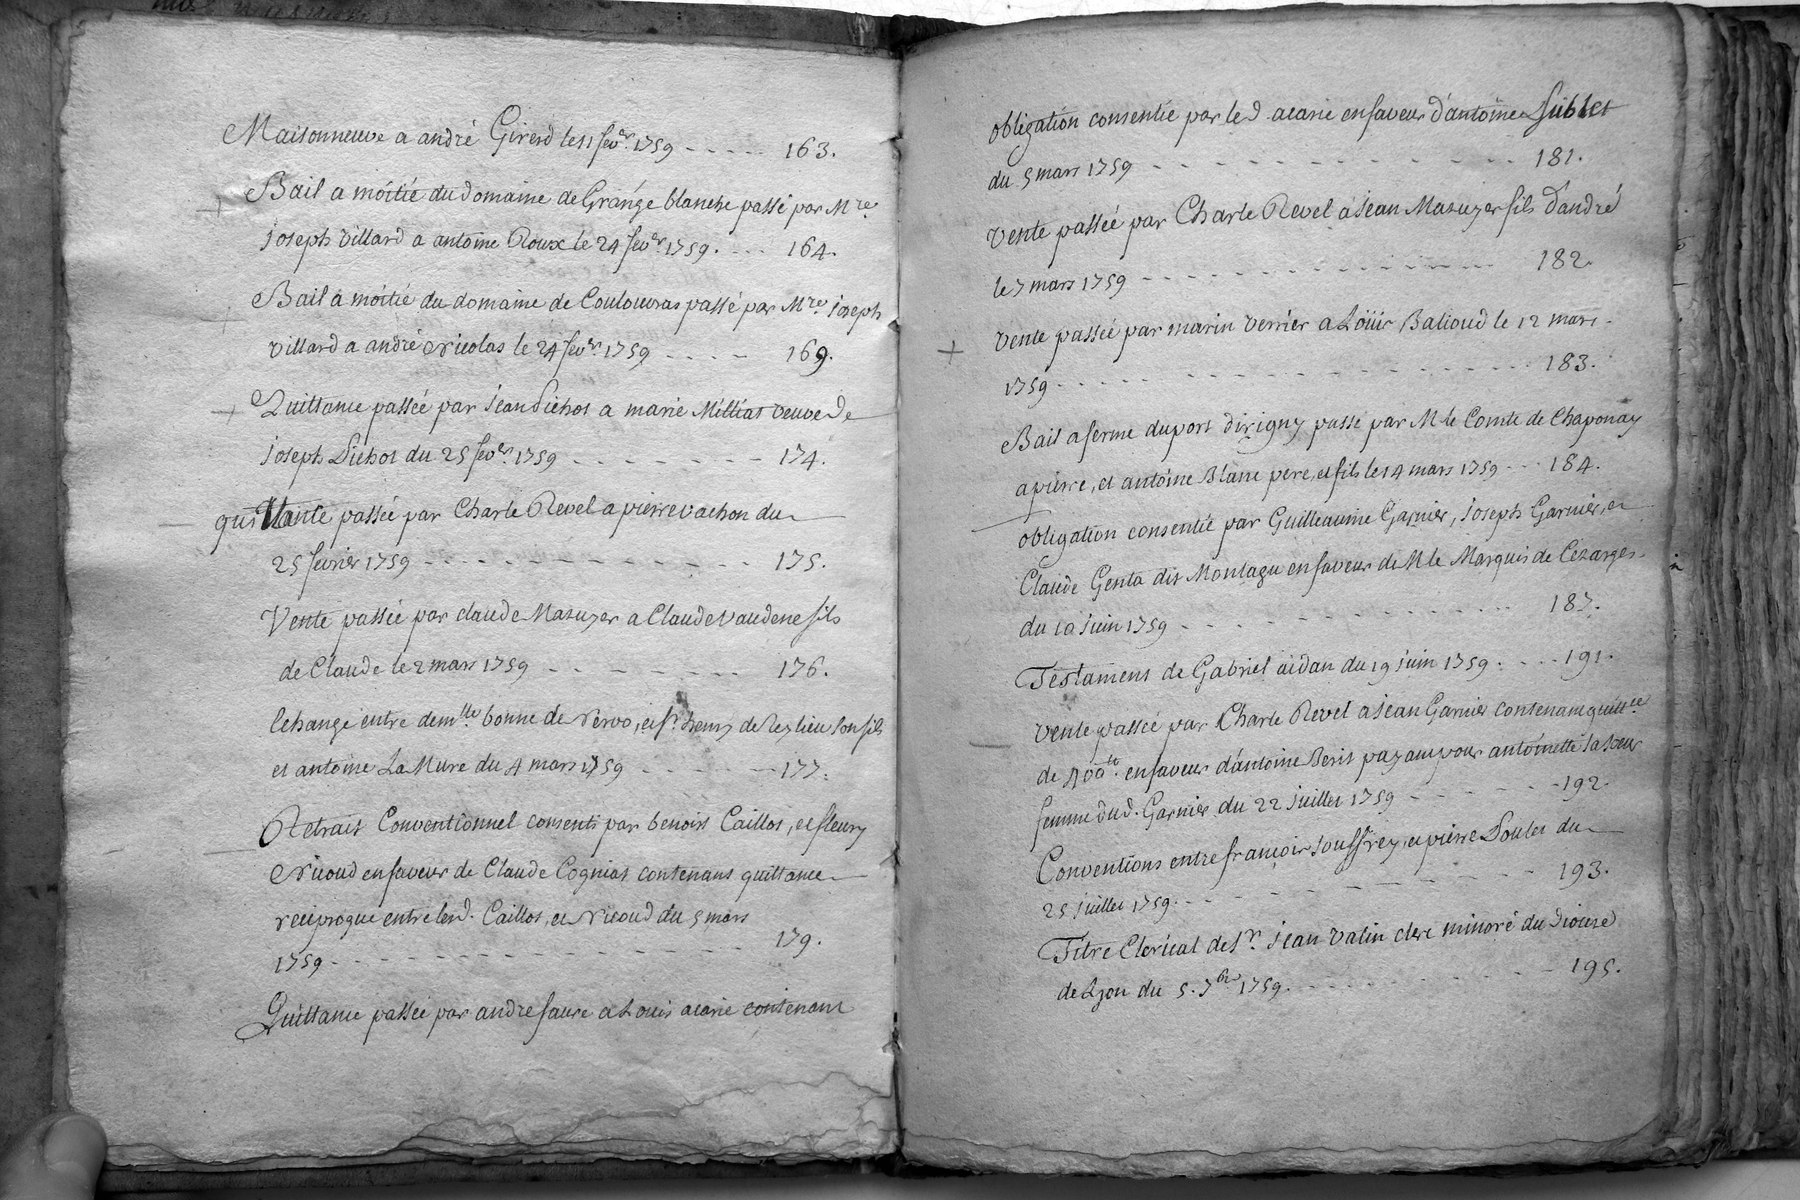 Maisonneuve a andré Girerd le 11 fevr. 1759 ----- 163.
Bail a moitié du domaine de Grange blanche passé par Mre.
joseph villard a antoine Roux le 24 fevr. 1759. --- 164.
Bail a moitié du domaine de Coulouvras passé par Mre. joseph
villard a andré Nicolas le 24 fevr. 1759 ---- 169.
Quittance passée par jean Pichot a marie Milliat veuve de
joseph Pichot du 25 fevr. 1759 ------- 174.
passée par Charle Revel a pierre vachon du
25 fevrier 1759 ------------ 175.
Vente passée par claude Masuyer a Claude vaudene fils
de Claude le 2 mars 1759 ------- 176.
Echange entre demlle bonne de Nervo, et sr. henry de Reylieu son fils
et antoine La Mure du 4 mars 1759 ------ 177.
Retrait Conventionnel consenti par benoist Caillot, et fleury
Nicoud en faveur de Claude Cogniat contenant quittance
reciproque entre lesd. Caillot, et Nicoud du 5 mars
1759 -------------- 179.
Quittance passée par andre faure a Louis acarie contenant
obligation consentie par led acarie en faveur d'antoine Sublet
du 5 mars 1759 ------------ 181.
Vente passée par Charle Revel a jean Masuyer fils d'andré
le 7 mars 1759 ------------ 182.
Vente passée par marin Verrier a Loüis Balioud le 12 mars
1759 --------------- 183.
Bail a ferme du port d'irigny passé par M le Comte de Chaponay
a pierre, et antoine Blanc pere, et fils le 14 mars 1759 --- 184.
obligation consentie par Guilleaume Garnier, joseph Garnier, et
Claude Genta dit Montagu en faveur de M le Marquis de Cezarges
du 10 juin 1759 ---------- 187.
Testament de Gabriel aidan du 19 juin 1759. --- 191.
Vente passée par Charle Revel a jean Garnier contenant quittce
de en faveur d'antoine Peris payant pour antoinette sa soeur
femme dud. Garnier du 22 juillet 1759 ------ 192.
Conventions entre francois jouffrey, et pierre Poulet du
25 juillet 1759. ---------- 193.
Titre Clerical de sr. jean Valin clerc minoré du diocese
de Lyon du 5. 7bre 1759. --------- 195.